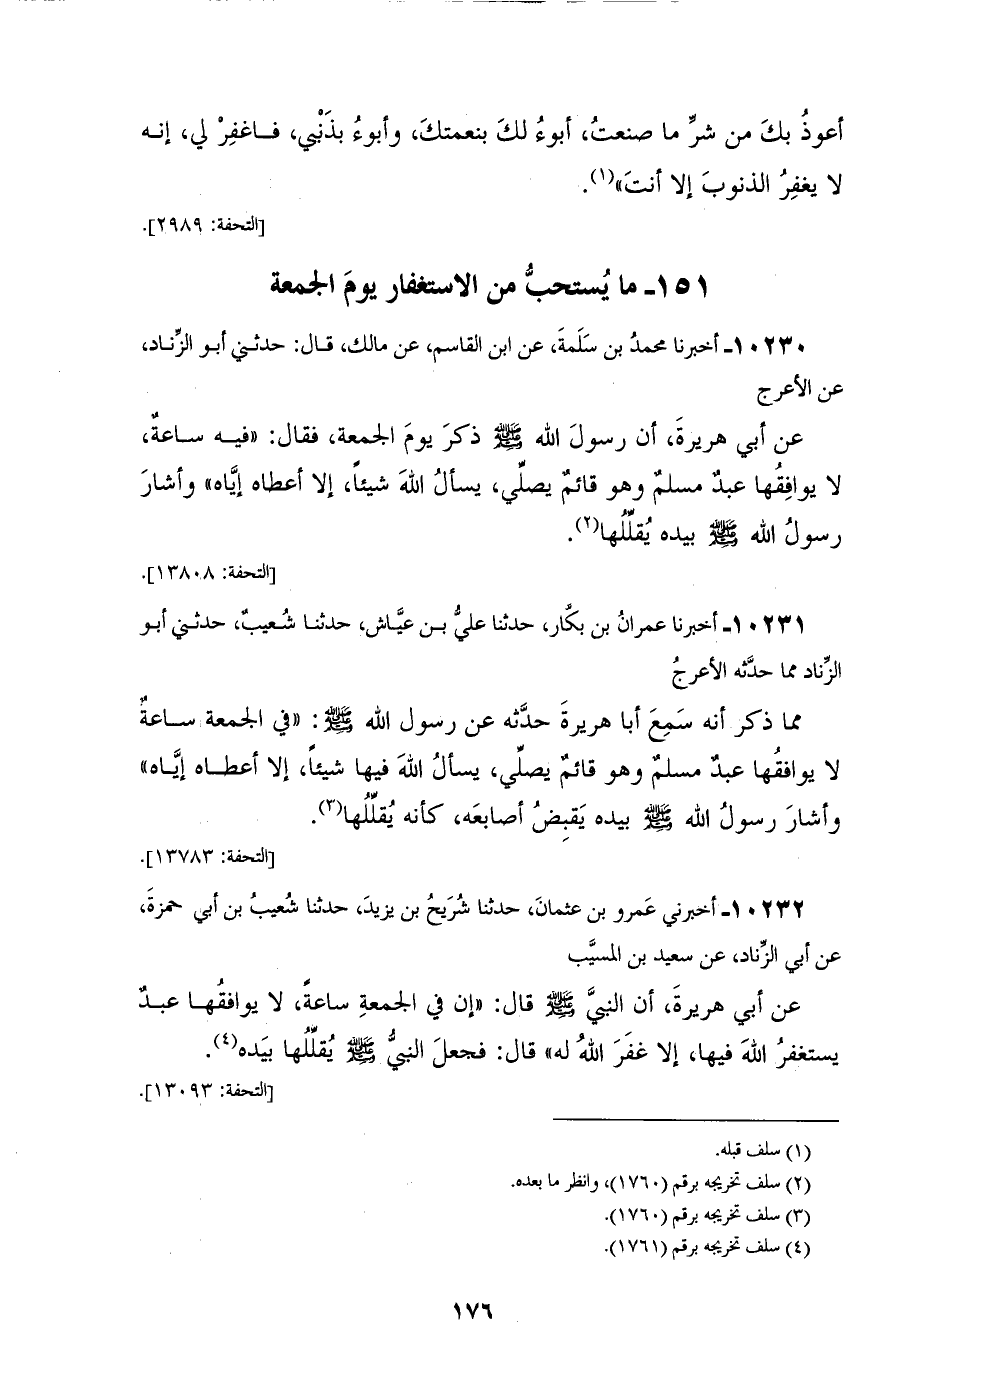 أعوذُ بكَ من شرِّ ما صنعتُ، أبوءُ لكَ بنعمتكَ، وأبوءُ بذَنْبي، فـاغفِرْ لي، إنـه
لا يغفِرُ الذنوبَ إلا أنتَ»(١).
[التحفة: ٢٩٨٩].
١٥١ـ ما يُستحبُّ من الاستغفار يومَ الجمعة
١٠٢٣٠ـ أخبرنا محمدُ بن سَلَمةَ، عن ابن القاسم، عن مالك، قـال: حدثـني أبـو الزِّنـاد،
عن الأعرج
عن أبي هريرةَ، أن رسولَ الله ﷺ ذكرَ يومَ الجمعة، فقال: «فيـه سـاعةٌ،
لا يوافِقُها عبدٌ مسلمٌ وهو قائمٌ يصلِّي، يسألُ اللهَ شيئاً، إلا أعطاه إيَّاه» وأشارَ
رسولُ الله ﷺ بيده يُقلِّلُها(٢).
[التحفة: ١٣٨٠٨].
١٠٢٣١ـ أخبرنا عمرانُ بن بكَّار، حدثنا عليُّ بـن عيَّاش، حدثنـا شُـعيبٌ، حدثـني أبـو
الزِّناد مما حدَّثه الأعرجُ
مما ذكر أنه سَمِعَ أبا هريرةَ حدَّثه عن رسول الله ﷺ: «في الجمعة سـاعةٌ
لا يوافقُها عبدٌ مسلمٌ وهو قائمٌ يصلِّي، يسألُ اللهَ فيها شيئاً، إلا أعطـاه إيَّـاه»
وأشارَ رسولُ الله ﷺ بيده يَقبِضُ أصابعَه، كأنه يُقلِّلُها(٣).
[التحفة: ١٣٧٨٣].
١٠٢٣٢ـ أخبرني عَمرو بن عثمانَ، حدثنا شُرَيحُ بن يزيدَ، حدثنا شُعيبُ بن أبي حمزةَ،
عن أبي الزِّناد، عن سعيد بن المسيَّب
عن أبي هريرةَ، أن النبيَّ ﷺ قال: «إن في الجمعةِ ساعةً، لا يوافقُهـا عبـدٌ
يستغفرُ اللهَ فيها، إلا غفَرَ اللهُ له» قال: فجعلَ النبيُّ ﷺ يُقلِّلُها بيَده(٤).
[التحفة: ١٣٠٩٣].
(١) سلف قبله.
(٢) سلف تخريجه برقم (١٧٦٠)، وانظر ما بعده.
(٣) سلف تخريجه برقم (١٧٦٠).
(٤) سلف تخريجه برقم (١٧٦١).
١٧٦